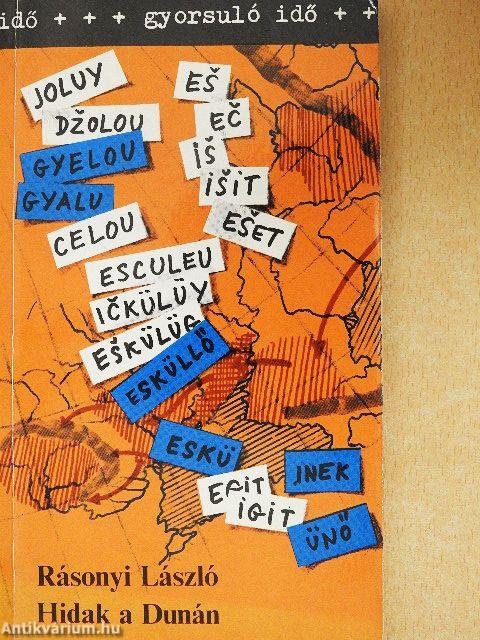 idő + + + gyorsuló idő + +
JOLUY
DŽOLOU
GYELOU
GYALU
CELOU
ESCULEU
IČKÜLÜY
EŠKÜLÜG
ESKÜLLŐ
EŠ
EČ
İŠ
İŠİT
EŠET
ESKÜ
EPIT
İGİT
INEK
ÜNŐ
Rásonyi László
Hidak a Dunán
Antikvarium.hu